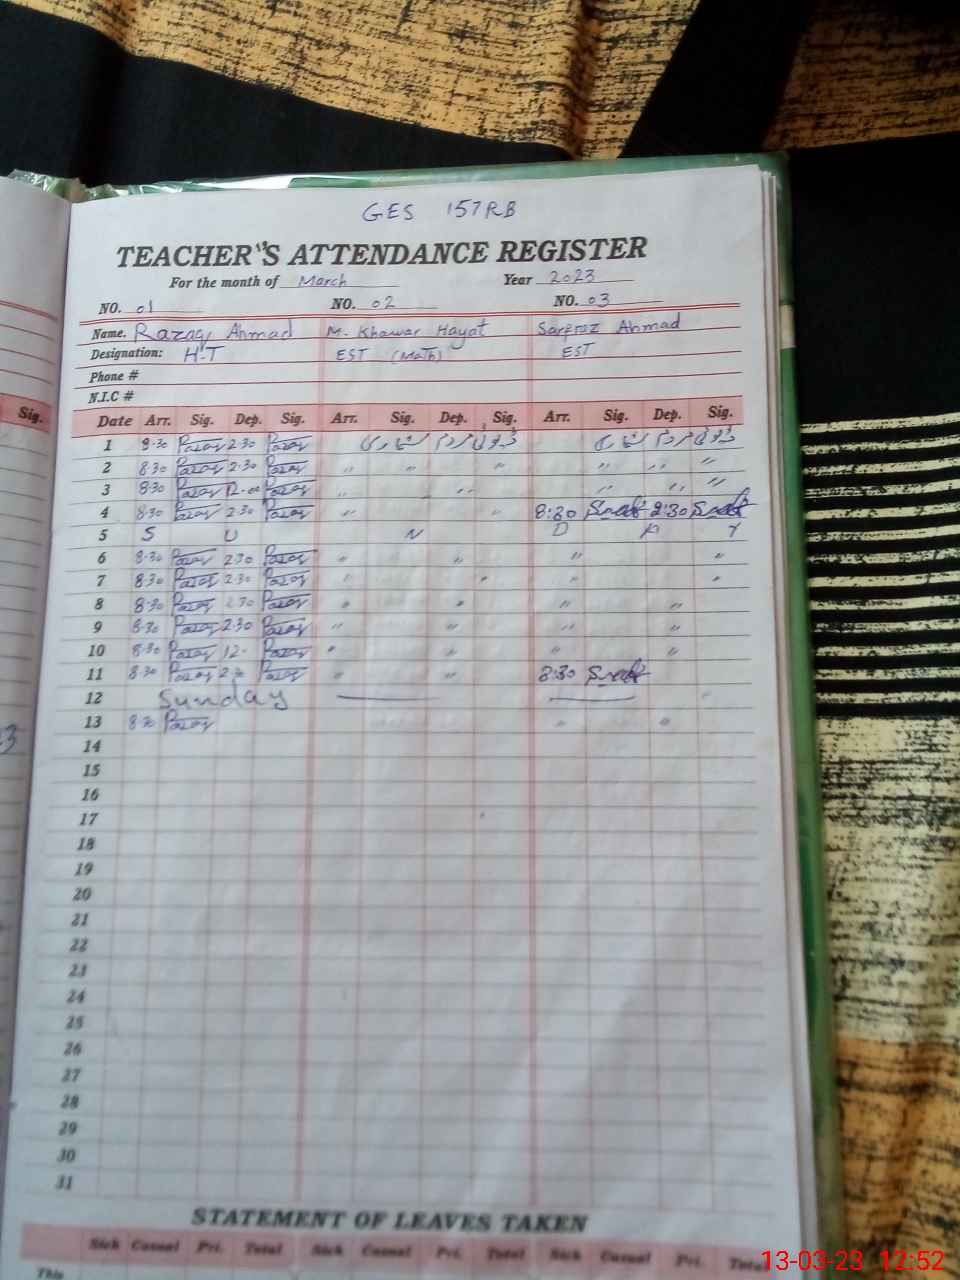 GES 157RB
TEACHER'S ATTENDANCE REGISTER
For the month of March Year 2023
NO. 01 NO. 02 NO. 03
Name. Razaq Ahmad M. Khawar Hayat Sarfraz Ahmad
Designation: H.T EST (Math) EST
Phone #
N.I.C #
Sig.
Date Arr. Sig. Dep. Sig. Arr. Sig. Dep. Sig. Arr. Sig. Dep. Sig.
1 8·30 2·30 ڈیوٹی مردم شماری ڈیوٹی مردم شماری
2 8·30 2·30 〃 〃 〃 〃 〃 〃
3 8·30 12·00 〃 〃 〃 〃 〃
4 8·30 2·30 〃 〃 8:30 2:30
5 S U N D A Y
6 8·30 2·30 〃 〃 〃 〃
7 8·30 2·30 〃 〃 〃 〃
8 8·30 2·30 〃 〃 〃 〃
9 8·30 2·30 〃 〃 〃 〃
10 8·30 12· 〃 〃 〃 〃
11 8·30 2·30 〃 〃 8:30
12 Sunday
13 8·30 〃 〃
14
15
16
17
18
19
20
21
22
23
24
25
26
27
28
29
30
31
STATEMENT OF LEAVES TAKEN
Sick Casual Pri. Total Sick Casual Pri. Total Sick Casual Pri. Total
This
13-03-23 12:52